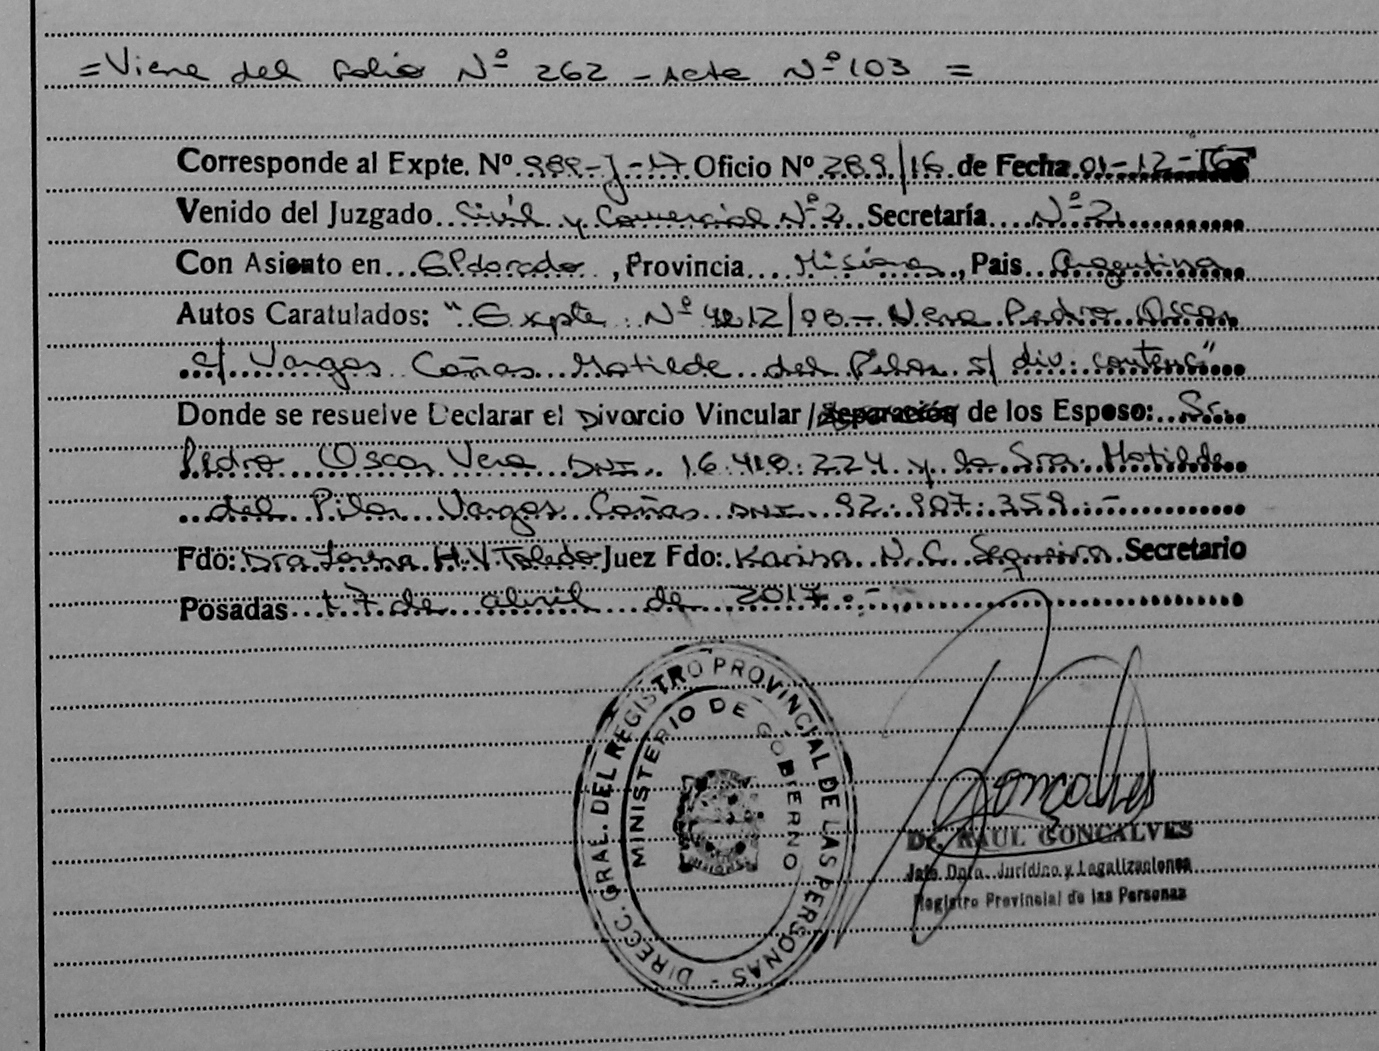 = Viene del folio Nº 262 - Acta Nº 103 =
Corresponde al Expte. Nº 988-J-17 Oficio Nº 289/16 de Fecha 01-12-16
Venido del Juzgado Civil y Comercial Nº 2 Secretaría Nº 2
Con Asiento en Eldorado, Provincia Misiones, Pais Argentina
Autos Caratulados: "Expte Nº 4212/08 - Vera Pedro Oscar
c/ Vargas Cañas Matilde del Pilar s/ div. contenc"
Donde se resuelve Declarar el Divorcio Vincular / de los Esposo: Sr.
Pedro Oscar Vera DNI. 16.410.224 y la Sra. Matilde
del Pilar Vargas Cañas DNI. 92.907.359.-
Fdo: Dra H. V Toledo Juez Fdo: Karina N. C. Sequeira Secretario
Posadas 17 de abril de 2017.-
DIRECC. GRAL. DEL REGISTRO PROVINCIAL DE LAS PERSONAS -
MINISTERIO DE GOBIERNO
Goncalves
Dr. RAUL GONCALVES
Jefe Dpto. Jurídico y Legalizaciones
Registro Provincial de las Personas